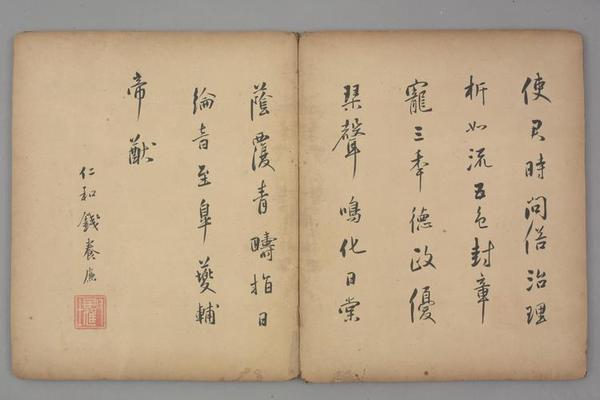 使君時問俗治理
析如流五色封章
寵三秊德政優
琹聲鳴化日棠
蔭覆青疇指日
綸音至皐夔輔
帝猷
仁和錢養廉